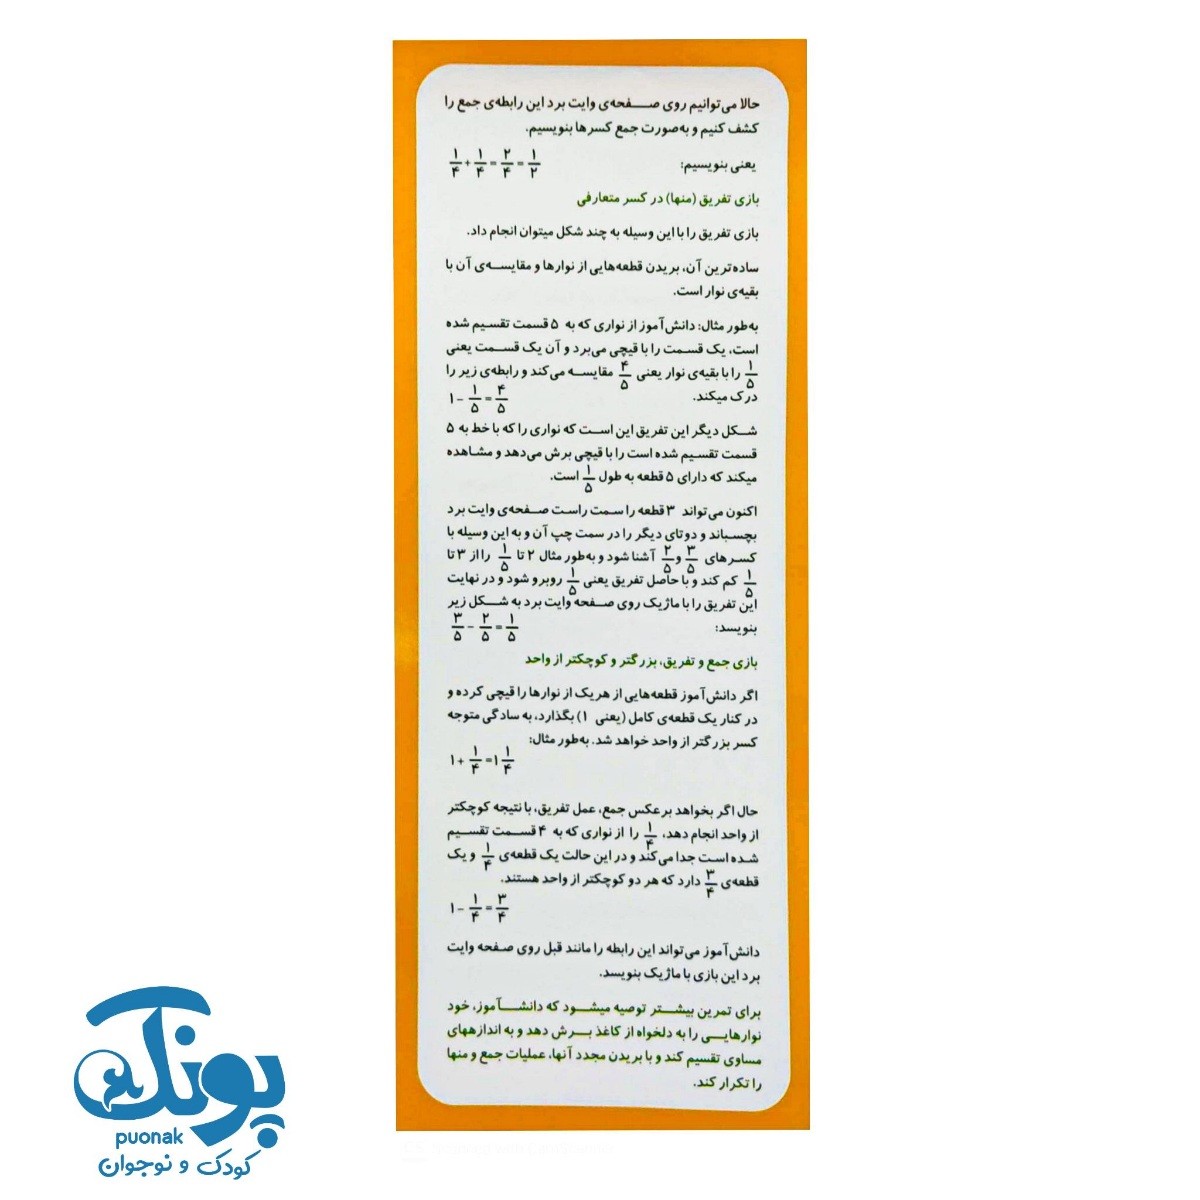 حالا می‌توانیم روی صـــفحه‌ی وایت برد این رابطه‌ی جمع را
کشف کنیم و به‌صورت جمع کسرها بنویسیم.
یعنی بنویسیم: ۱/۴ + ۱/۴ = ۲/۴ = ۱/۲
بازی تفریق (منها) در کسر متعارفی
بازی تفریق را با این وسیله به چند شکل میتوان انجام داد.
ساده‌ترین آن، بریدن قطعه‌هایی از نوارها و مقایسه‌ی آن با
بقیه‌ی نوار است.
به‌طور مثال: دانش‌آموز از نواری که به ۵ قسمت تقسیم شده
است، یک قسمت را با قیچی می‌برد و آن یک قسمت یعنی
۱/۵ را با بقیه‌ی نوار یعنی ۴/۵ مقایسه می‌کند و رابطه‌ی زیر را
درک میکند. ۱ - ۱/۵ = ۴/۵
شکل دیگر این تفریق این است که نواری را که با خط به ۵
قسمت تقسیم شده است را با قیچی برش می‌دهد و مشاهده
میکند که دارای ۵ قطعه به طول ۱/۵ است.
اکنون می‌تواند ۳ قطعه را سمت راست صفحه‌ی وایت برد
بچسباند و دوتای دیگر را در سمت چپ آن و به این وسیله با
کسرهای ۳/۵ و ۲/۵ آشنا شود و به‌طور مثال ۲ تا ۱/۵ را از ۳ تا
۱/۵ کم کند و با حاصل تفریق یعنی ۱/۵ روبرو شود و در نهایت
این تفریق را با ماژیک روی صفحه وایت برد به شکل زیر
بنویسد: ۳/۵ - ۲/۵ = ۱/۵
بازی جمع و تفریق، بزرگتر و کوچکتر از واحد
اگر دانش‌آموز قطعه‌هایی از هریک از نوارها را قیچی کرده و
در کنار یک قطعه‌ی کامل (یعنی ۱) بگذارد، به سادگی متوجه
کسر بزرگتر از واحد خواهد شد. به‌طور مثال:
۱ + ۱/۴ = ۱ ۱/۴
حال اگر بخواهد برعکس جمع، عمل تفریق، با نتیجه کوچکتر
از واحد انجام دهد، ۱/۴ را از نواری که به ۴ قسمت تقسیم
شده است جدا می‌کند و در این حالت یک قطعه‌ی ۱/۴ و یک
قطعه‌ی ۳/۴ دارد که هر دو کوچکتر از واحد هستند.
۱ - ۱/۴ = ۳/۴
دانش‌آموز می‌تواند این رابطه را مانند قبل روی صفحه وایت
برد این بازی با ماژیک بنویسد.
برای تمرین بیشتر توصیه میشود که دانش‌آموز، خود
نوارهایی را به دلخواه از کاغذ برش دهد و به اندازههای
مساوی تقسیم کند و با بریدن مجدد آنها، عملیات جمع و منها
را تکرار کند.
پونک
puonak
کودک و نوجوان